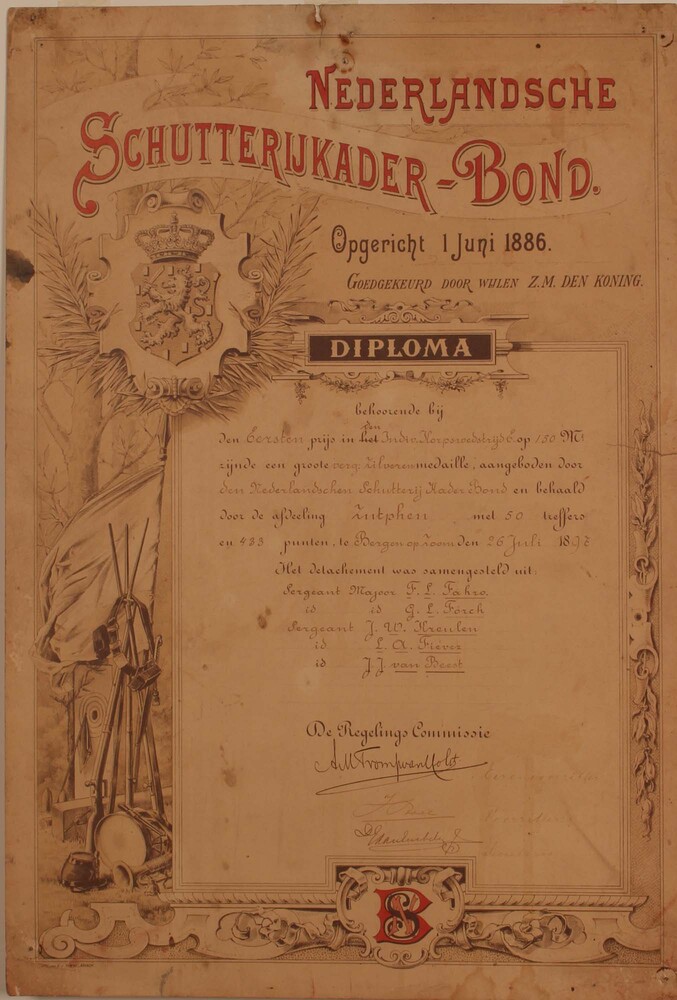 NEDERLANDSCHE
SCHUTTERIJKADER-BOND.
Opgericht 1 Juni 1886.
GOEDGEKEURD DOOR WIJLEN Z.M. DEN KONING.
DIPLOMA
behoorende bij
den Eersten prijs in het den Indiv. Korpswedstrijd op 150 M.
zijnde een groote verg. Zilveren medaille, aangeboden door
den Nederlandschen Schutterij Kader Bond en behaald
door de afdeeling Zutphen met 50 treffers
en 433 punten, te Bergen op Zoom den 26 Juli 1897
Het detachement was samengesteld uit:
Sergeant Majoor F. L. Fahro.
id id G. L. Forch
Sergeant J. W. Kreulen
id L. A. Fievez
id J. J. van Beest
De Regelings Commissie
A M Tromp van Holst
SB